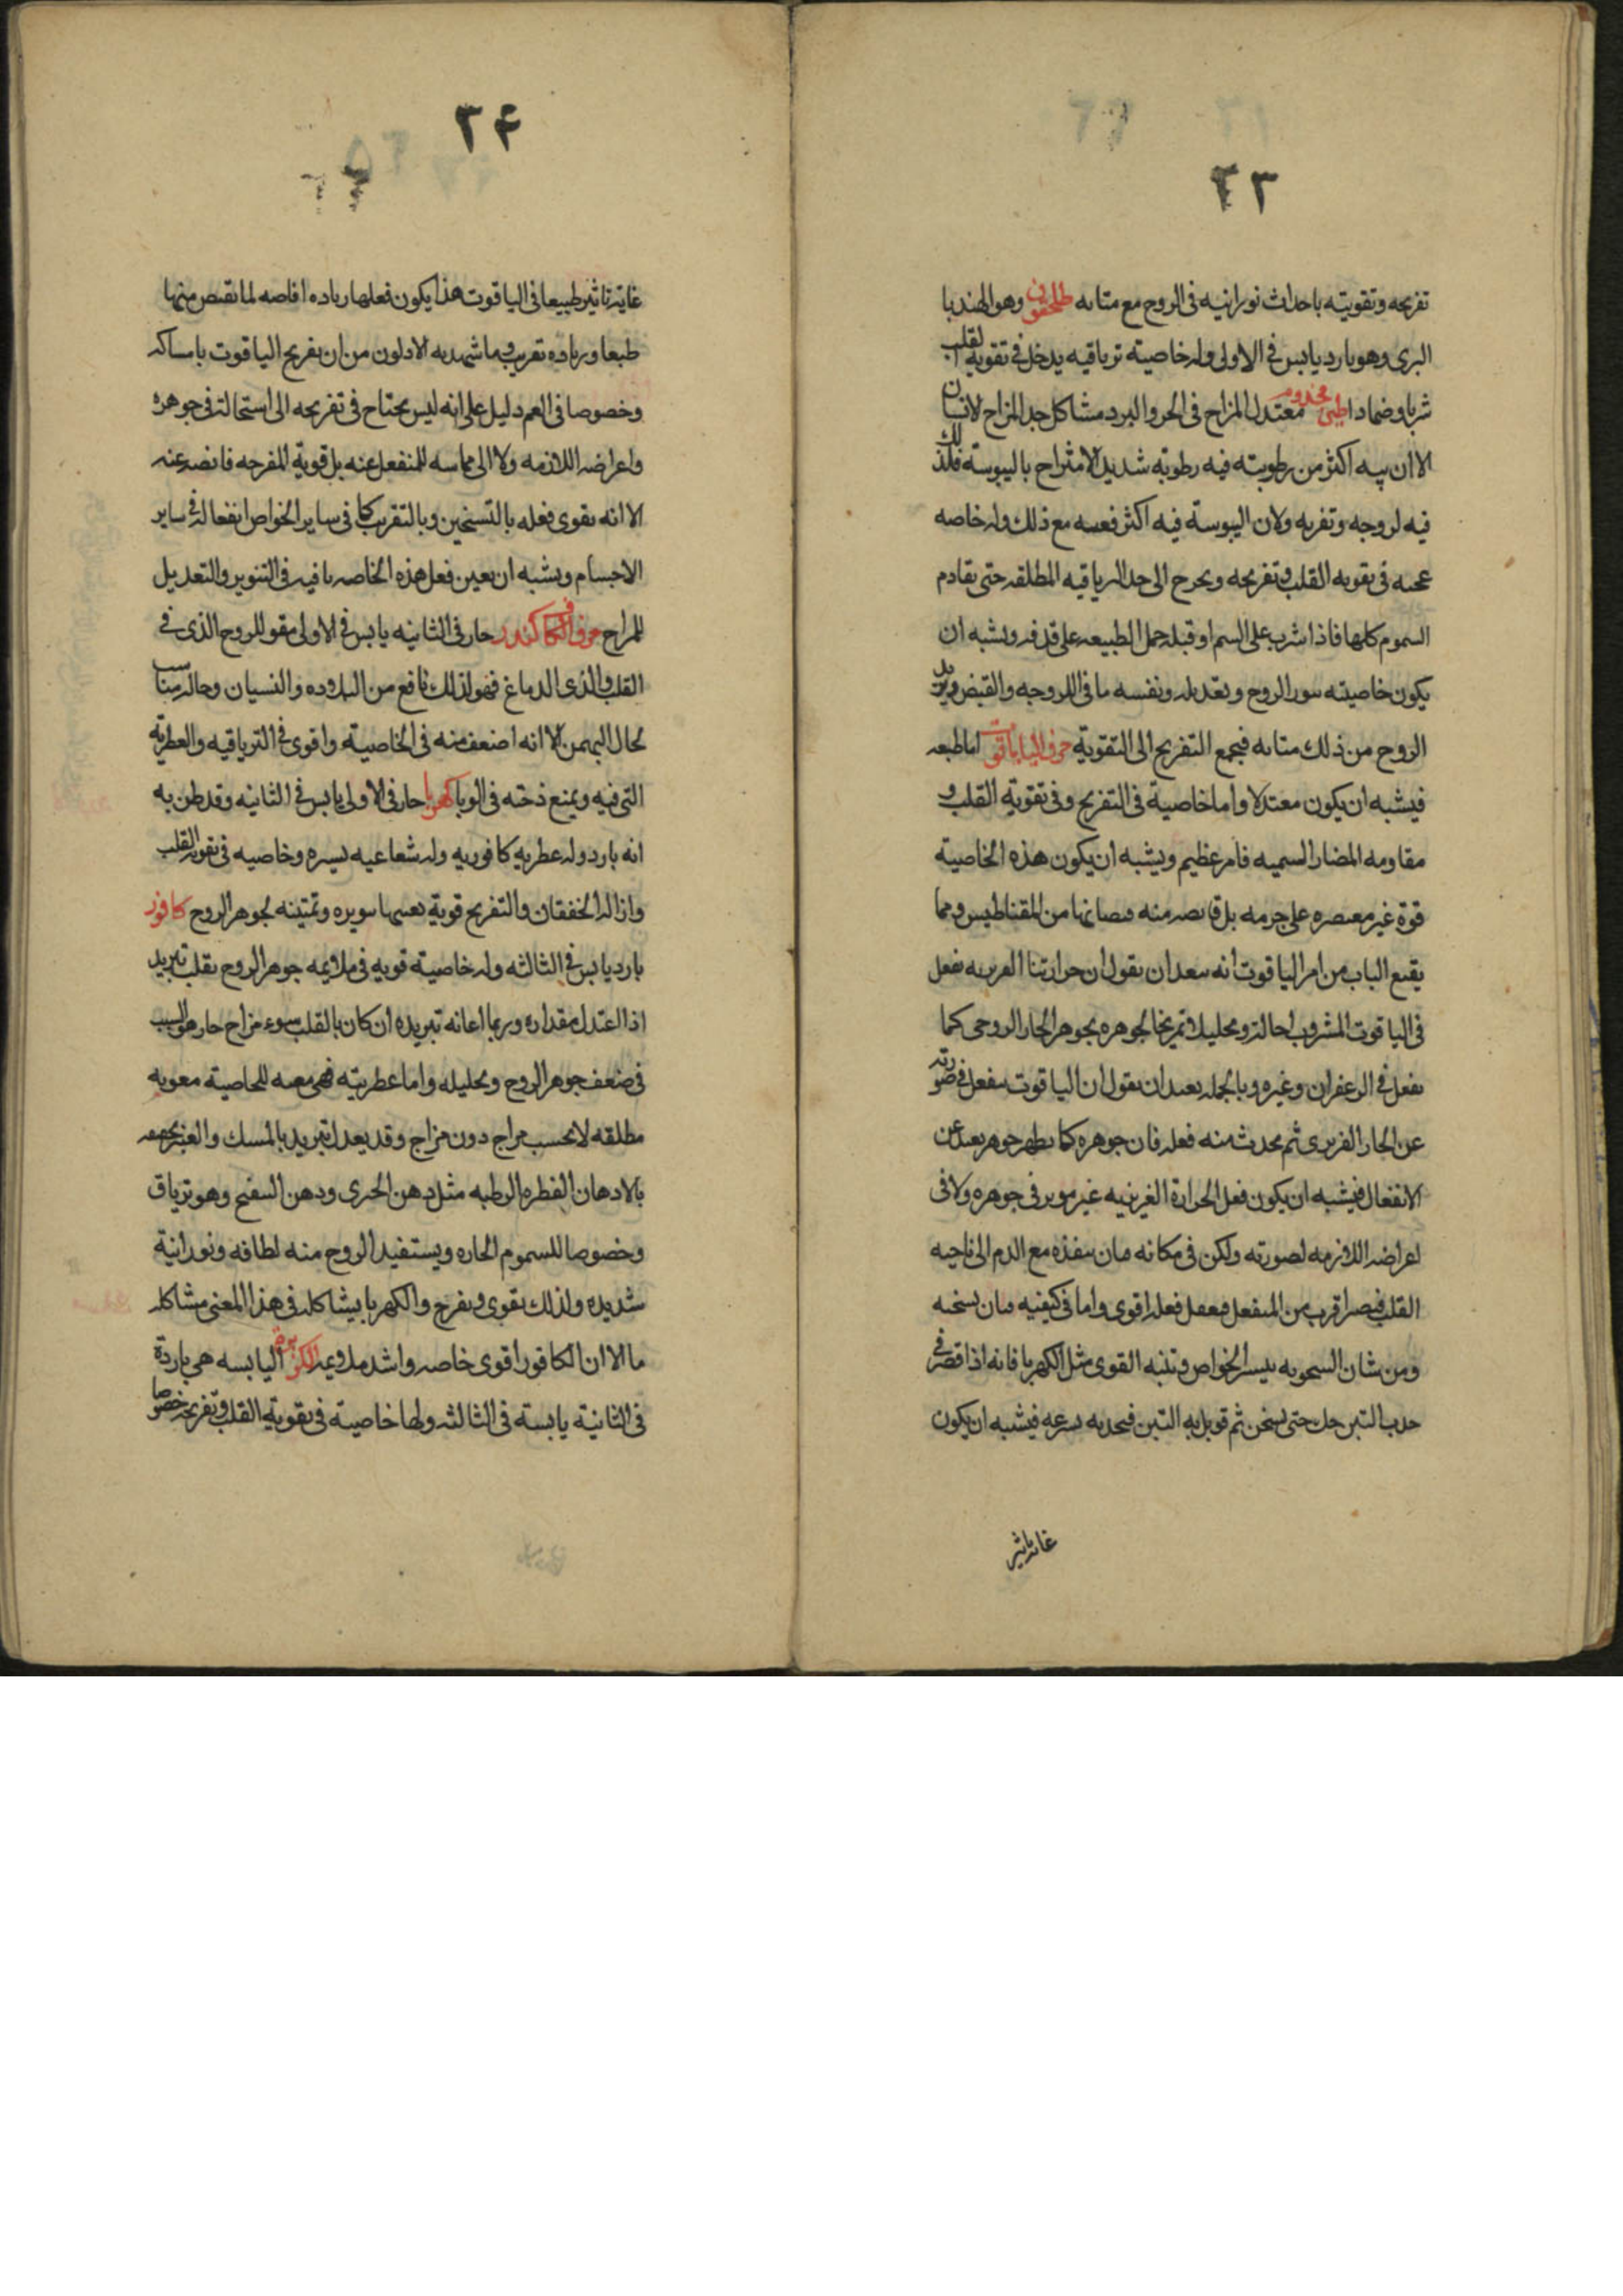 ٢٣
تفريحه وتقويته باحداث نورانيه فى الروح مع متانه طلحشقوق وهو الهندبا
البرى وهو بارد يابس فى الاولى وله خاصية ترياقيه يدخل فى تقوية القلب
شربا وضمادا طين مختوم معتدل المزاج فى الحر والبرد مشاكل جدا لمزاج الانسان
الا ان يبسه اكثر من رطوبته فيه رطوبه شديد الامتزاج باليبوسة فلذلك
فيه لزوجه وتغريه ولان اليبوسة فيه اكثر ففيه مع ذلك وله خاصه
عجيبه فى تقويه القلب وتفريحه ويخرج الى حد الترياقيه المطلقه حتى يقادم
السموم كلها فاذا شرب على السم او قبله حمل الطبيعه على قذفه ويشبه ان
يكون خاصيته تنوير الروح وتعديله ونفسه ما فى اللزوجه والقبض ويزيد
الروح من ذلك متانه فيجمع التفريح الى التقوية حرف اليا ياقوت اما طبعه
فيشبه ان يكون معتدلا واما خاصية فى التفريح وفى تقوية القلب و
مقاومه المضار السميه فامر عظيم ويشبه ان يكون هذه الخاصية
قوة غير مقتصره على جرمه بل فايضه منه فيضانها من المقناطيس ومما
يقنع الباب من امر الياقوت انه يبعد ان يقول ان حرارتنا الغريزيه تفعل
فى الياقوت المشروب احالة وتحليلا وتمزيجا لجوهره بجوهر الحار الروحى كما
يفعل فى الزعفران وغيره وبالجمله يبعد ان نقول ان الياقوت ينفعل فى صورته
عن الحار الغريزى ثم يحدث منه فعله فان جوهره كما يظهر جوهر بعيد عن
الانفعال فيشبه ان يكون فعل الحرارة الغريزيه غير موثر فى جوهره ولا فى
اعراضه اللازمه لصورته ولكن فى مكانه فبان ينفذه مع الدم الى ناحيه
القلب فيصير اقرب من المنفعل فيفعل فعله اقوى واما فى كيفيه فبان يسخنه
ومن شان السخونه تيسير الخواص وتنبه القوى مثل الكهربا فانه اذا قصر فى
جذب التبن حك حتى يسخن ثم قوبل به التبن فيجذبه بسرعه فيشبه ان يكون
غاية تاثير
٢۴
غاية تاثير طبيعيا فى الياقوت هذا يكون فعلها زياده افاضه لما يفيض منها
طبعا وزياده تقريب وما شهد به الاولون من ان تفريح الياقوت بامساكه
وخصوصا فى الفم دليل على انه ليس يحتاج فى تفريحه الى استحالة فى جوهره
واعراضه اللازمه ولا الى مماسه المنفعل عنه بل قوية المفرحه فايضه عنه
الا انه يقوى فعله بالتسخين وبالتقريب كما فى ساير الخواص انفعاله فى ساير
الاجسام ويشبه ان يعين فعل هذه الخاصه ما فيه فى التنوير والتعديل
للمزاج حرف الكاف كندر حار فى الثانيه يابس فى الاولى مقو للروح الذى فى
القلب والذى الدماغ فهو لذلك نافع من البلاده والنسيان وحاله مناسب
لحال البهمن الا انه اضعف منه فى الخاصية واقوى فى الترياقيه والعطرية
التى فيه ويمنع دخنه فى الوبا كهربا حار فى الاولى يابس فى الثانيه وقد ظن به
انه بارد وله عطرية كافوريه وله شعاعيه يسيره وخاصيه فى تقوية القلب
وازالة الخفقان والتفريح قوية يعينها تنويره وتمتينه لجوهر الروح كافور
بارد يابس فى الثالثه وله خاصية قويه فى ملايمه جوهر الروح يقلب تبريد
اذا اعتدل مقداره وربما اعانه تبريده ان كان بالقلب سوء مزاج حار هو السبب
فى ضعف جوهر الروح وتحليله واما عطريته فهى معينه للخاصية معونه
مطلقه لا بحسب مزاج دون مزاج وقد يعدل تبريد بالمسك والعنبر
بالادهان العطره الرطبه مثل دهن الخيرى ودهن البنفسج وهو ترياق
وخصوصا للسموم الحاره ويستفيد الروح منه لطافه ونورانية
شديده ولذلك يقوى ويفرح والكهربا يشاكله فى هذا المعنى مشاكله
ما الا ان الكافور اقوى خاصه واشد ملايمه الكزبره اليابسه هى باردة
فى الثانية يابسة فى الثالثه ولها خاصية فى تقوية القلب وتفريحه خصوصا